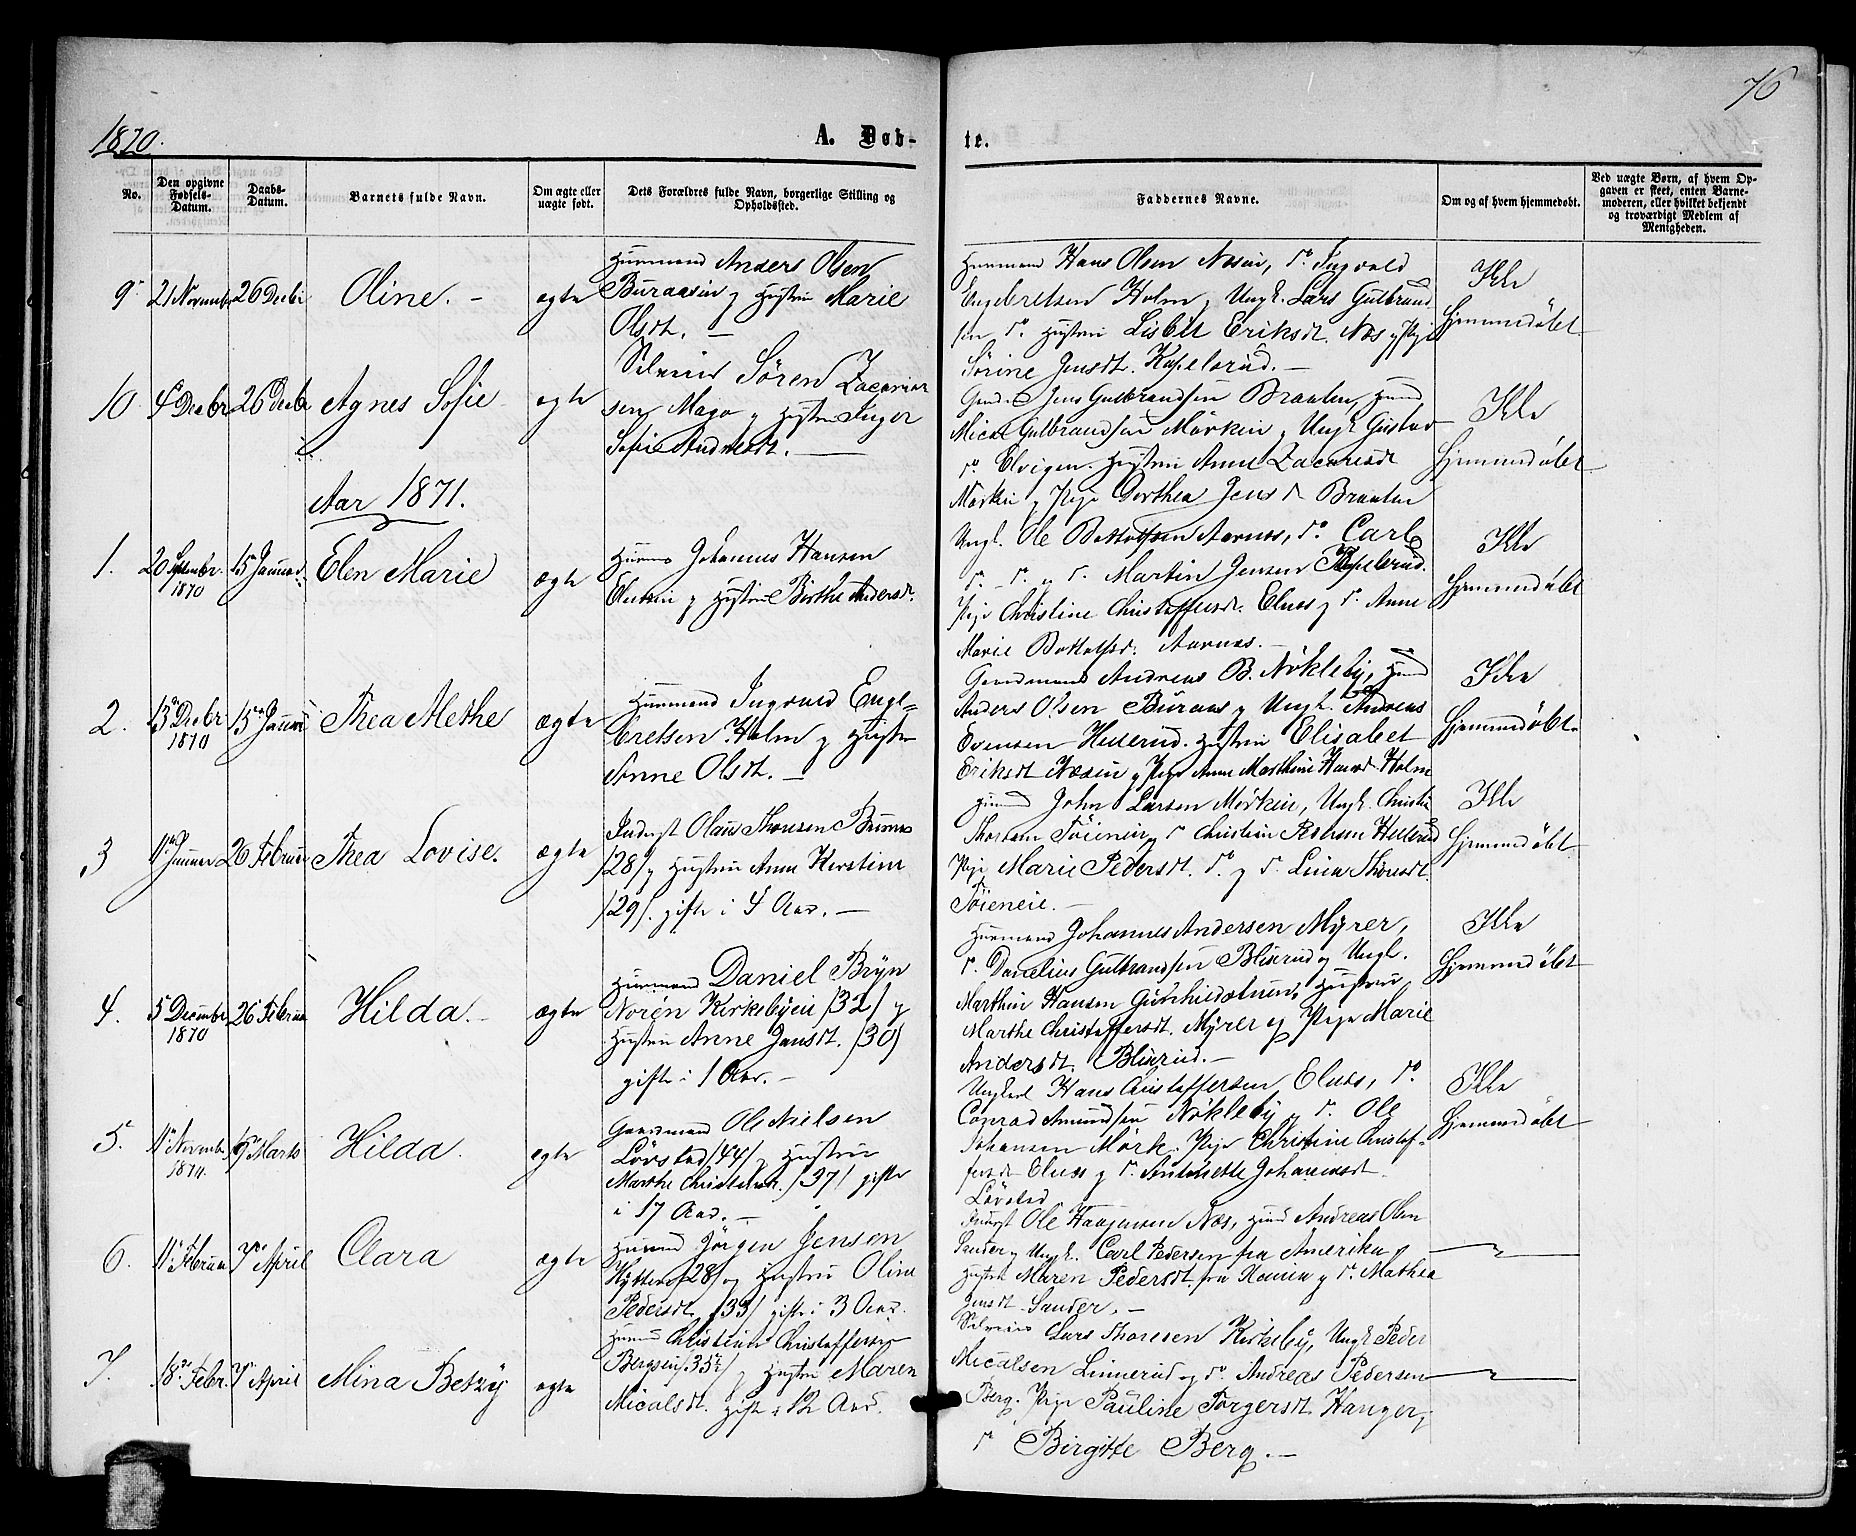 76
1870.
A. Døb-
te.
No.
Den opgivne
Fødsels-
Datum.
Daabs-
Datum.
Barnets fulde Navn.
Om ægte eller
uægte født.
Dets Forældres fulde Navn, borgerlige Stilling og
Opholdssted.
Faddernes Navne.
Om og af hvem hjemmedøbt.
Ved uægte Børn, af hvem Op-
gaven er skeet, enten Barne-
moderen, eller hvilket bekjendt
og troværdigt Medlem af
Menigheden.
9
21 Novembr
26 Decbr
Oline. -
ægte
Huusmand Anders Olsen
Buraasen og Hustru Marie
Olsdt. -
Huusmand Hans Olsen Næsen, do Ingvald
Engebretsen Holm og Ungk. Lars Gulbrand
sen do Hustru Lisbet Eriksdt. Næs og Pige
Sörine Jensdt. Kapelsrud. -
Ikke
hjemmedöbt
10
4 Decbr
26 Decbr
Agnes Sofie
ægte
Sören Zacarias
sen Mago og Hustru Inger
Sofie Andreasdt. -
Gmd. Jens Gulbrandsen Braaten, Huusmd
Micael Gulbrandsen Mörken og Ungk Gustav
do Elvigen. Hustru Anne Zacariasdt
Mörken og Pige Dorthea Jensdt Braaten
Ikke
hjemmedöbt
Aar 1871.
1.
20 Septembr.
1870
15 Januar.
Elen Marie
ægte
Huusmd Johannes Hansen
og Hustru Birthe Andersdt.
Ungk. Ole Bottolfsen Aarnæs, do Carl
do - do og do Martin Jensen Kapelsrud.
Pige Christine Christoffersdt. Elnæs og do Anne
Marie Bottolfsdt. Aarnæs. -
Ikke
hjemmedöbt
2.
13 Decbr
1870
15 Januar
Thea Methe
ægte
Huusmand Ingvald Enge-
bretsen Holm og Hustru
Anne Olsdt. -
Gaardmand Andreas B. Nökleby, Huusmd
Anders Olsen Buraas og Ungk. Andreas
Evensen Hellerud. Hustru Elisabet
Eriksdt Næsen og Pige Anne Marthine Hansdt Holm
Ikke
hjemmedöbt.
3
11 Januar
26 Februar
Thea Lovise.
ægte
Inderst Olaus Thoresen
/28/ og Hustru Anne Kirstine
/29/. gifte i 4 Aar. -
John Larsen Mörken, Ungk. Christian
Thoresen Töieneie, og do Christian Hellerud
Pige Marie Pedersdt. do og do Lina Thoresdt.
Töieneie. -
Ikke
hjemmedöbt
4.
5 Decembr
1870
26 Februar
Hilda. -
ægte
Huusmand Daniel Bryn
Norén Kirkebyeie /32/ og
Hustru Anne Jansdt. /30/
gifte i 1 Aar. -
Huusmand Johannes Andersen Myrer,
do Danelius Gulbrandsen Blixrud og Ungk.
Marthin Hansen Gunhildsætren, Hustru
Marthe Christoffersdt. Myrer og Pige Marie
Andersdt. Blixrud. -
Ikke
hjemmedöbt
5.
11 Novembr
1870.
19 Marts
Hilda.
ægte
Gaardmand Ole Nielsen
Lövstad /44/ og Hustru
Marthe /37/ gifte
i 17 Aar. -
Ungkarl Hans Christoffersen Elnæs, do
Conrad Amundsen Nökleby og do Ole
Johansen Mörk. Pige Christine Christof-
fersdt Elnæs og do Antonette Johannesdt
Lövstad
Ikke
hjemmedöbt
6.
11 Februar
7 April
Clara
ægte
Huusmand Jörgen Jensen
Hytten /28/ og Hustru Oline
Pedersdt. /33/ gifte i 3 Aar.
Inderst Ole Haagensen Næs, Huusmd Andreas Olsen
Sander og Ungk. Carl Pedersen fra Amerika,
Hustru Maren Pedersdt. fra og do Mathea
Jensdt. Sander. -
7.
18 Febr.
7 April
Mina Betzy
ægte
Huusmd Christian Christoffersen
Bergseie /35½/ og Hustru Maren
Micalsdt. gifte i 12 Aar.
Lars Thoresen Kirkeby, Ungk Peder
Micalsen Linnerud og do Andreas Pedersen
Berg. Pige Pauline Torgersdt. Hanger,
do Birgitte Berg. -